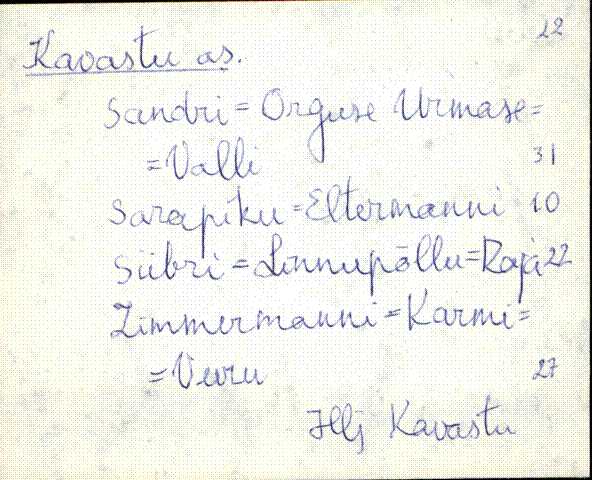 22
Kavastu as.
Sandri = Orguse Urmase =
= Valli 31
Sarapiku = Eltermanni 10
Siibri = Linnupõllu = Raja 22
Zimmermanni = Karmi =
= Veeru 27
Hlj Kavastu